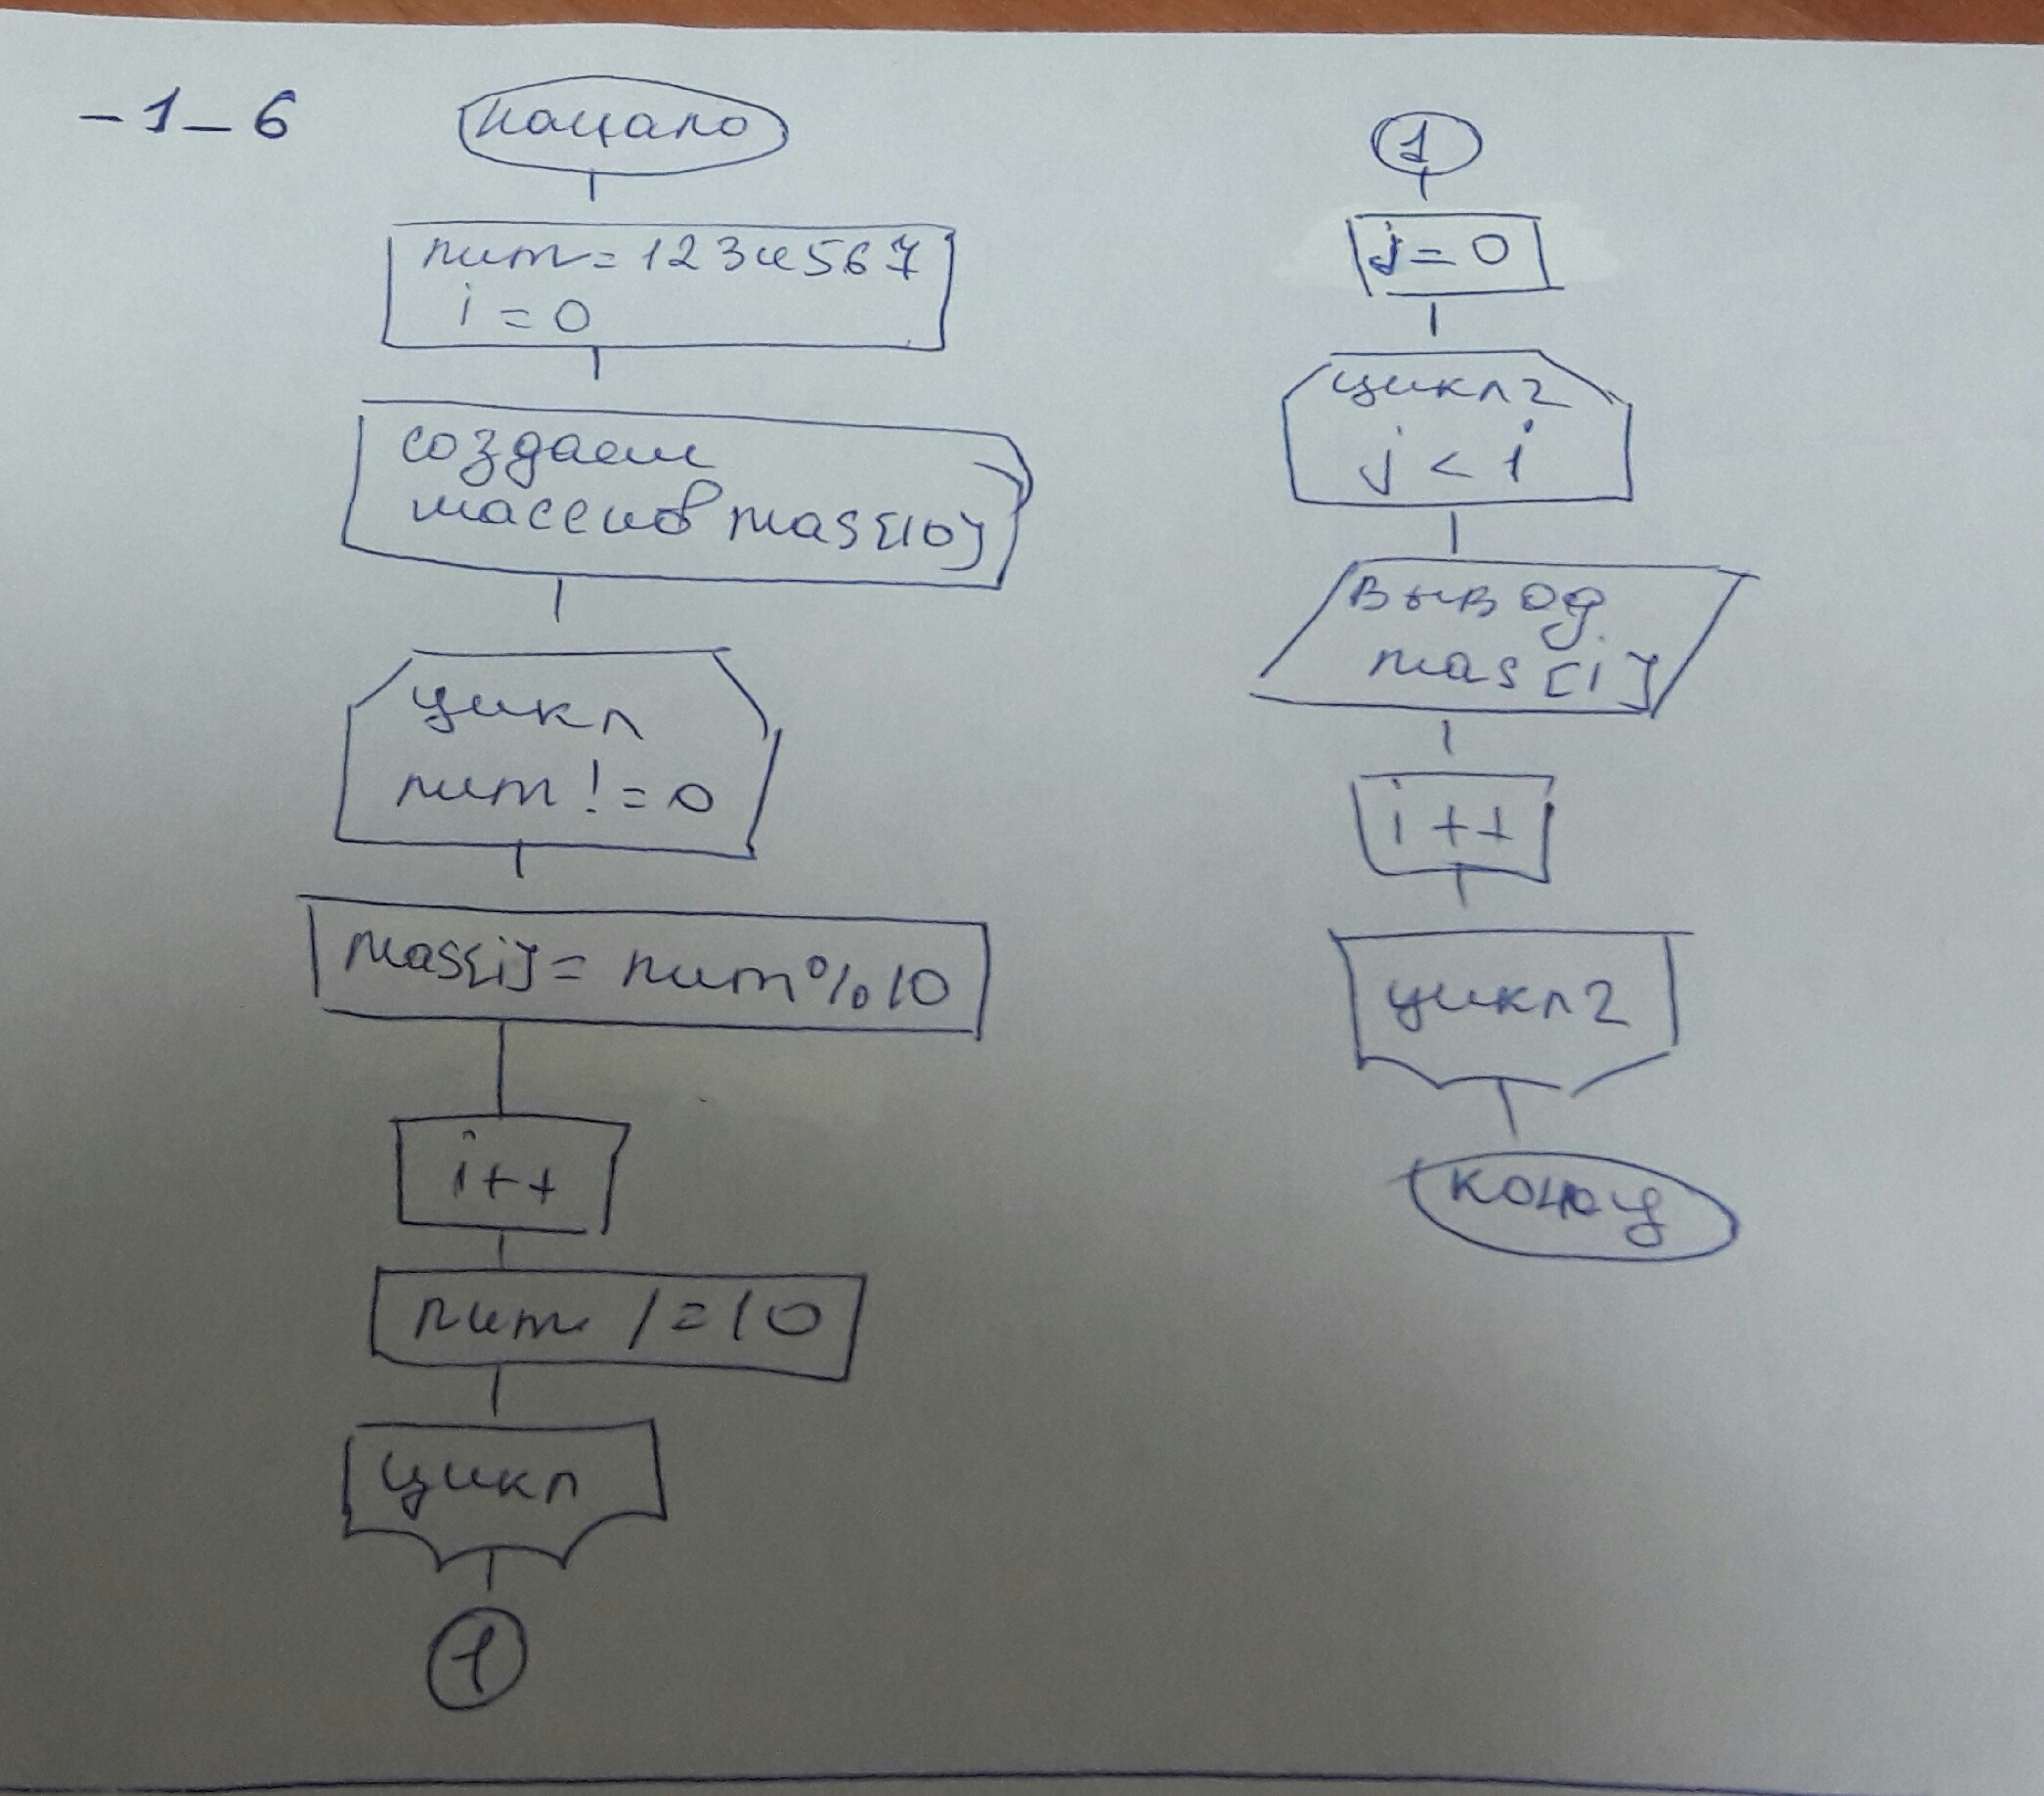 -1_6
начало
num=1234567
i=0
создаем
массив mas[10]
цикл
num!=0
mas[i]=num%10
i++
num/=10
цикл
1
1
j=0
цикл2
j<i
вывод
mas[i]
i++
цикл2
конец